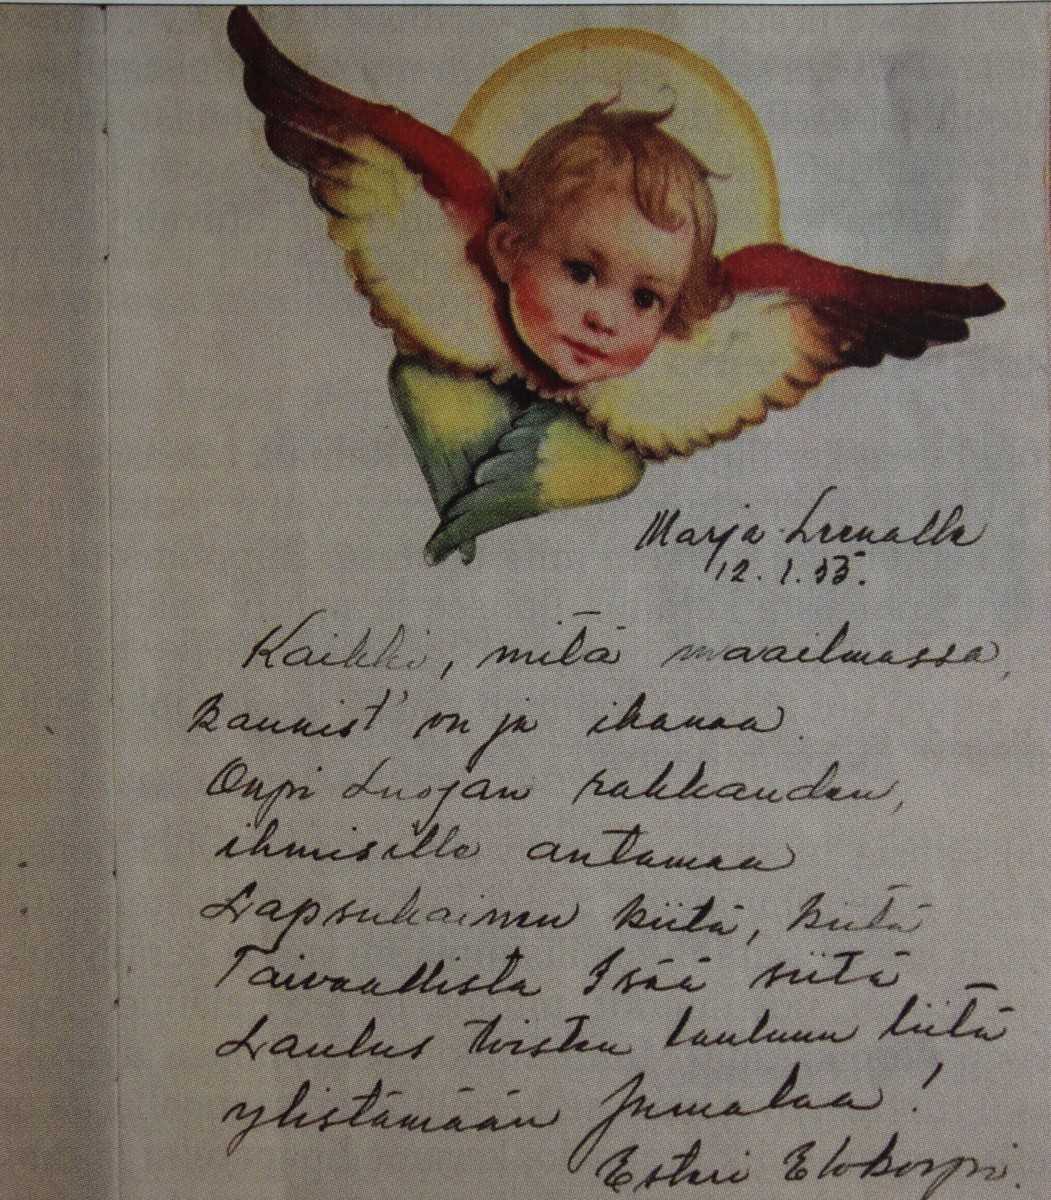 Marja-Leenalle
12.1.55.
Kaikki, mitä maailmassa,
kaunist' on ja ihanaa
Onpi Luojan rakkauden,
ihmisille antamaa
Lapsukainen kiitä, kiitä
Taivaallista Isää siitä
Laulus toisten lauluun liitä
ylistämään Jumalaa!
Esteri Elokorpi.